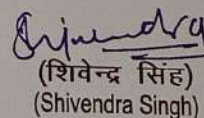 Shivendra
(शिवेन्द्र सिंह)
(Shivendra Singh)